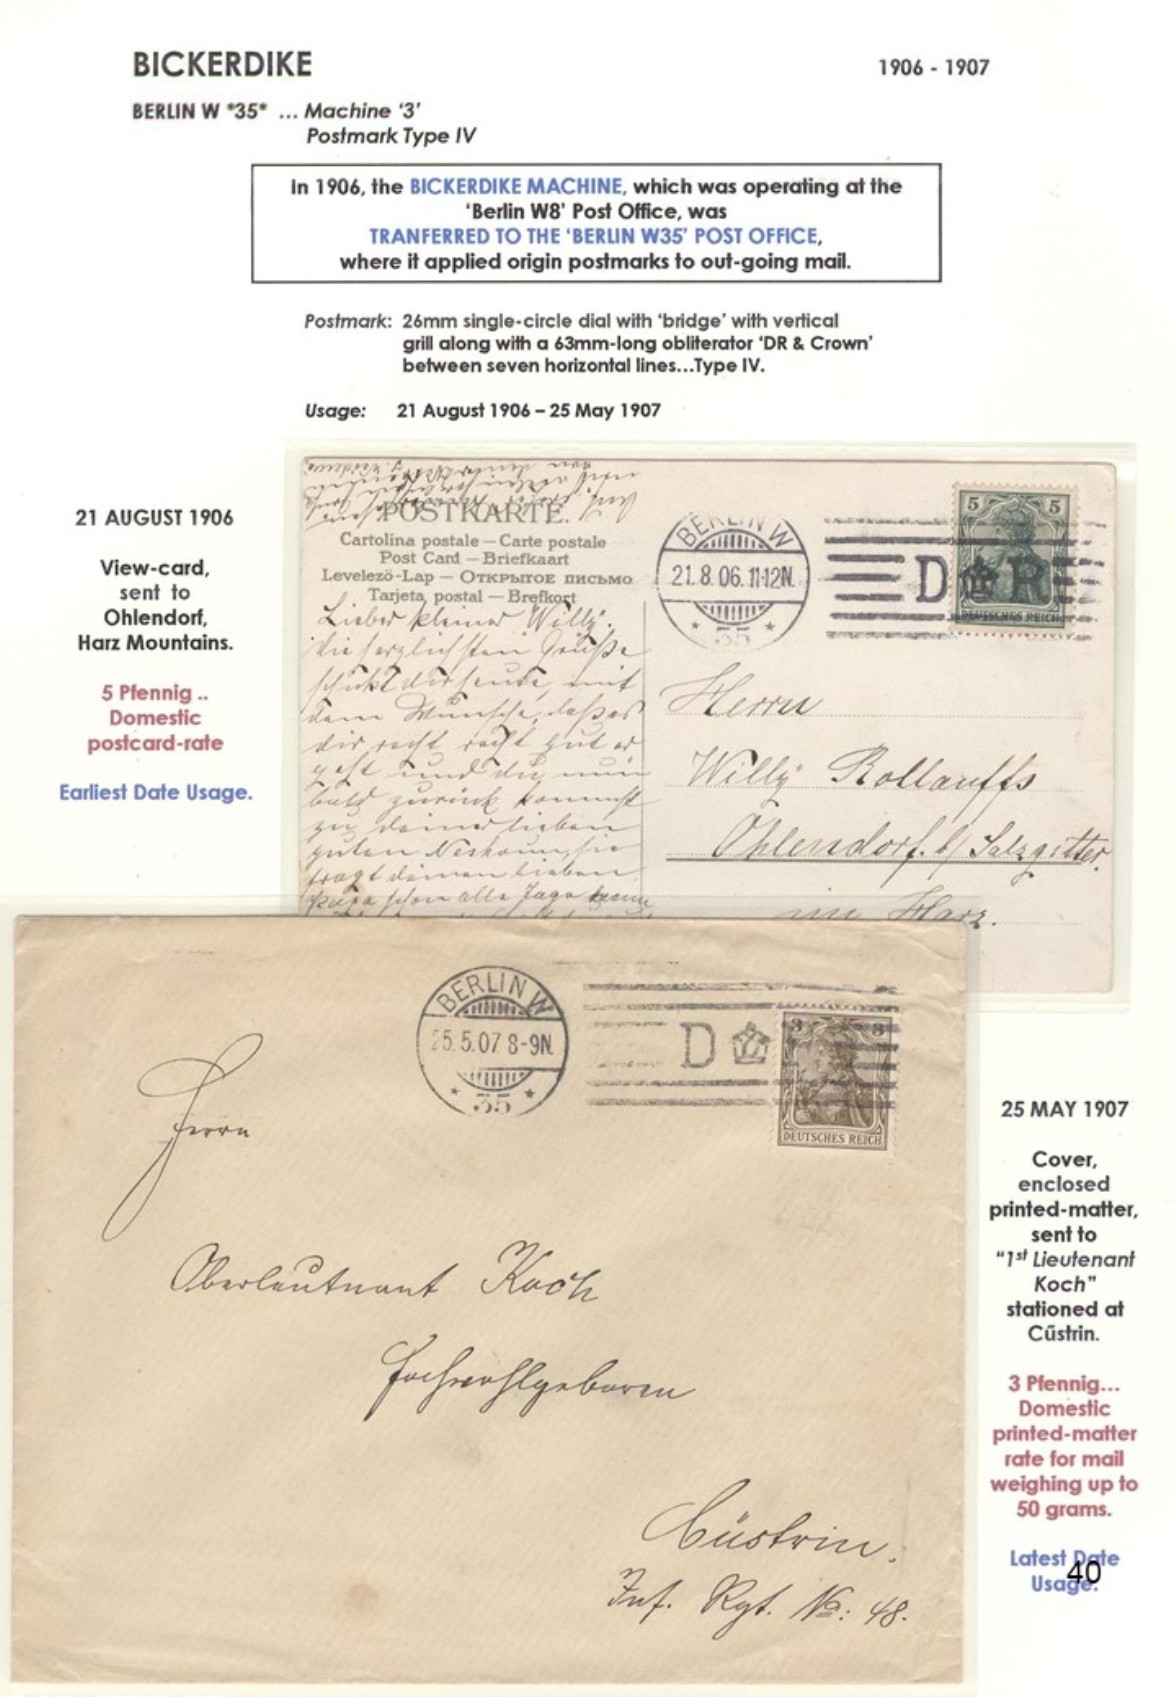 BICKERDIKE
1906 - 1907
BERLIN W *35* ... Machine ‘3’
Postmark Type IV
In 1906, the BICKERDIKE MACHINE, which was operating at the
‘Berlin W8’ Post Office, was
TRANFERRED TO THE ‘BERLIN W35’ POST OFFICE,
where it applied origin postmarks to out-going mail.
Postmark: 26mm single-circle dial with ‘bridge’ with vertical
grill along with a 63mm-long obliterator ‘DR & Crown’
between seven horizontal lines...Type IV.
Usage: 21 August 1906 – 25 May 1907
21 AUGUST 1906
View-card,
sent to
Ohlendorf,
Harz Mountains.
5 Pfennig ..
Domestic
postcard-rate
Earliest Date Usage.
POSTKARTE.
Cartolina postale — Carte postale
Post Card — Briefkaart
Levelező-Lap — Открытое письмо
Tarjeta postal — Brefkort
Lieber kleiner Willy.
die herzlichsten Grüße
schickt dir heute mit
dem Wunsche, daß es
dir recht recht gut er
geht und du nun
bald zurück kommst
zu deiner lieben
guten
fragt deinen lieben
Papa schon alle Tage
BERLIN W
21.8.06. 11-12N.
* 35 *
D R
5 5
DEUTSCHES REICH
Herrn
Willy Rollauffs
Ohlendorf. b/ Salzgitter.
im Harz.
BERLIN W
25.5.07 8-9N.
* 35 *
D
3 3
DEUTSCHES REICH
Herrn
Oberleutnant Koch
Hochwohlgeboren
Cüstrin.
Inf. Rgt. No: 48.
25 MAY 1907
Cover,
enclosed
printed-matter,
sent to
“1st Lieutenant
Koch”
stationed at
Cűstrin.
3 Pfennig...
Domestic
printed-matter
rate for mail
weighing up to
50 grams.
Latest Date
Usage.
40